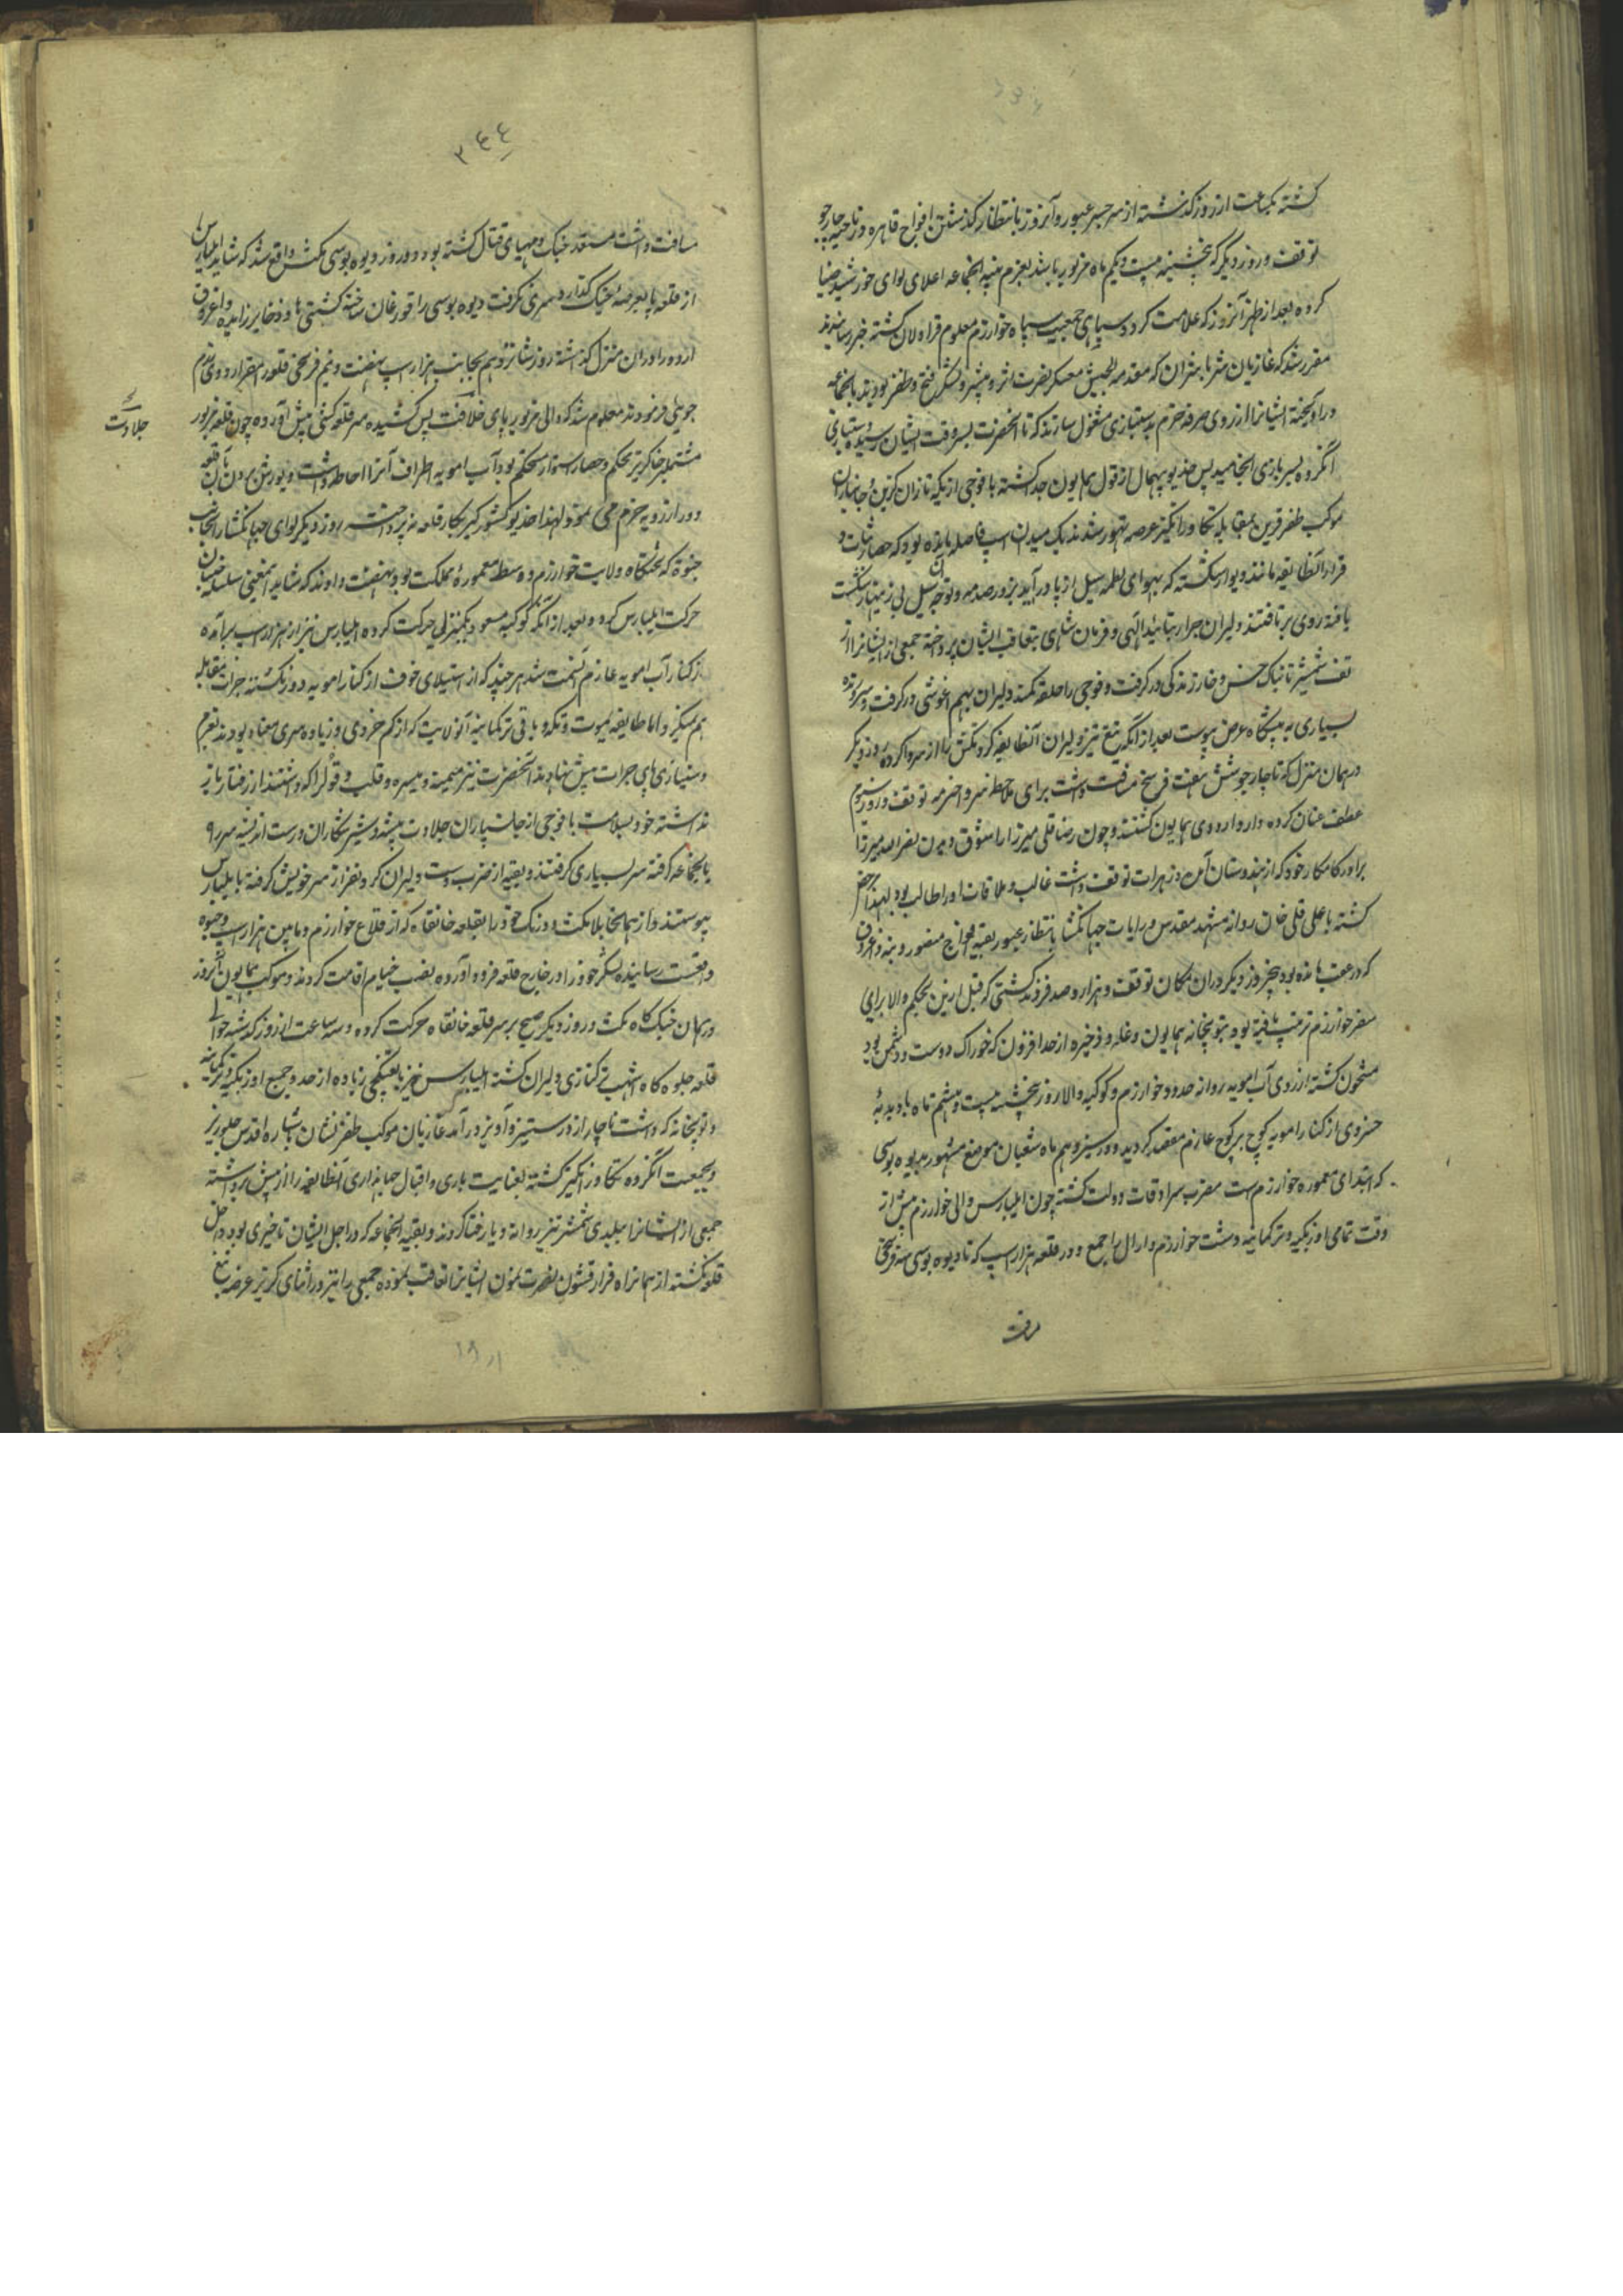 گشته یکساعت از روز گذشته از سر جسر عبور و آنروز بانتظار گذشتن افواج قاهره در ناحیه چارجو
توقف و روز دیگر که پنجشنبه بیست و یکم ماه مزبور باشد بعزم تنبیه انجماعه اعلای لوای خورشید ضیا
کرده بعد از ظهر آنروز که علامت کرد و سیاهی جمعیت سپاه خوارزم معلوم قراولان گشته خبر رسانیدند
مقرر شد که غازیان شیر نا بتران که مقدمه الجیش معسکر نصرت اثر و پیشرو لشکر فتح و ظفر بودند بانجماعه
در آویخته ایشانرا از روی صرفه حزم بدستبازی مشغول سازند که تا آنحضرت بسر وقت ایشان رسیده دستبازی
انگروه بسربازی انجامید پس خدیو بیهمال از قول همایون جدا گشته با فوجی از یکه تازان کزین و جانبازان
موکب ظفر قرین بمقابله تکاور انگیز عرصه تهور شدند یک میدان اسب فاصله مانده بود که حصار ثبات و
قرار آنطایفه مانند دیوار شکسته که بهوای لطمه سیل از پا در آید بزور صدمه و توجه آن سیل بی زینهار شکست
یافته روی برتافتند و لیران جرار بتائید الهی و فرمان شاهی بتعاقب ایشان پرداخته جمعی از ایشانرا از
تف شمشیر تابناک خس و خار زندگی در گرفت و فوجی را حلقه کمند دلیران بهم آغوشی در گرفت و سر زنده
بسیاری به پیشگاه عرض پیوست بعد از آنکه تیغ تیز دلیران آنطایفه گردنکش را از سر وا کرده روز دیگر
در همان منزل که تا چارجو شش هفت فرسخ مسافت داشت برای ملاحظه سر و اخترمه توقف و روز سیم
عطف عنان کرده وارد اردوی همایون گشتند و چون رضاقلی میرزا را شوق دیدن نصرالله میرزا
برادر کامکار خود که از هندوستان آمده در هرات توقف داشت غالب و ملاقات او را طالب بود لهذا مرخص
گشته با علی قلی خان روانه مشهد مقدس و رایات جهانگشا بانتظار عبور بقیه افواج منصور و بنه و اغروق
که در عقب مانده بود پنجروز دیگر در ان مکان توقف و هزار و صد فروند کشتی که قبل ازین بحکم والا برای
سفر خوارزم ترتیب یافته بود بتوپخانه همایون و غله و ذخیره از حد افزون که خوراک دوست و دشمن بود
مشحون گشته از روی آب امویه روانه حدود خوارزم و کوکبه والا روز پنجشنبه بیست و هشتم ماه با دبدبه
خسروی از کنار امویه کوچ بر کوچ عازم مقصد گردید و در سیزدهم ماه شعبان موضع مشهور بدیوه بویسی
که ابتدای معموره خوارزم است مضرب سرادقات دولت گشته چون ایلبارس والی خوارزم پیش از
وقت تمامی اوزبکیه و ترکمانیه دشت خوارزم و ارال را جمع و در قلعه هزار اسپ که تا دیوه بویسی سه فرسخ
مسافت
۲۴۴
مسافت داشت مستعد جنگ و مهیای قتال گشته بود دو روز در دیوه بویسی مکث واقع شد که شاید ایلبارس
از قلعه پا بعرصه جنگ گذارد سری نکرفت دیوه بویسی را قورغان ساخته کشتی ها و ذخایر زایده و اغروق
اردو را در ان منزل گذاشته روز شانزدهم بجانب هزار اسپ نهضت و نیم فرسخی قلعه را مقر اردوی ظفر
جوی فرمودند معلوم شد که والی مزبور پای خلافت پس کشیده سر قلعه کشی پیش آورده چون قلعه مزبور
مشتمل بر خاکریز محکم و حصار استوار مستحکم بود آب امویه اطراف آنرا احاطه داشت و یورش بردن بآن قلعه
دور از رویه حزم می نمود لهذا خدیو کشور گیر بکار قلعه نپرداخته روز دیگر لوای جهانگشا را بجانب
خیوق که تختگاه ولایت خوارزم و وسط معموره مملکت بود نهضت دادند که شاید اینمعنی سلسله جنبان
حرکت ایلبارس گردد و بعد از آنکه کوکبه مسعود یکمنزلی حرکت کرده ایلبارس نیز از هزار اسپ برآمده
از کنار آب امویه عازم آنسمت شد هر چند که از استیلای خوف از کنار امویه دور نکشته جرات بمقابله
هم نمیکرد اما طایفه یموت و تکه و باقی ترکمانیه آنولایت که از کم خردی و زیاده سری معتاد بودند بعزم
دستبازی پای جرات پیش نهادند آنحضرت نیز میمنه و میسره و قلب و قول را که داشتند از رفتار باز
نداشته خود بسلامت با فوجی از جانسپاران جلادت پیشه و شیر شکاران درست اندیشه سر راه
بانجماعه گرفته سر بسیاری گرفتند و بقیه از ضرب دست دلیران گرد نفر از سر خویش گرفته بایلبارس
پیوستند و از همانجا بلا مکث و درنگ خود را بقلعه خانقاه که از قلاع خوارزم و مابین هزار اسپ و خیوه
واقعست رسانیده لشکر خود را در خارج قلعه فرود آورده بنصب خیام اقامت کردند و موکب همایون آنروز
در همان جنگ گاه مکث و روز دیگر صبح بر سر قلعه خانقاه حرکت کرده و سه ساعت از روز گذشته حوالی
قلعه جلوه گاه اشهب ترکتازی دلیران گشته ایلبارس نیز با تفنگچی زیاده از حد و جمیع اوزبکیه و ترکمانیه
و توپخانه که داشت ناچار از در ستیز و آویز در آمد غازیان موکب ظفر نشان باشاره اقدس جلوریز
بجمعیت انگروه تکاور انگیز گشته بعنایت باری و اقبال جهانداری آنطایفه را از پیش برداشته
جمعی از ایشانرا ببلدی شمشیر تیز روانه دیار فنا کردند و بقیه انجماعه که در اجل ایشان تاخیری بود داخل
قلعه نگشته از همانراه فرار قشون نصرت نمون ایشانرا تعاقب نموده جمعی را نیز در اثنای گریز عرضه تیغ
جلادت